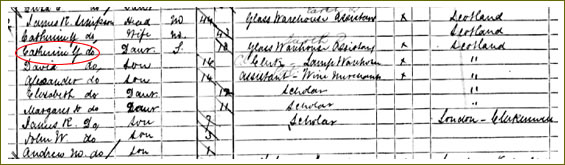 James R. Simpson Head M. 44 Glass Warehouse Assistant x Scotland
Catherine Y. do Wife M. Scotland
Catherine Y. do Daur. S. 18 Glass Warehouse Assistant x Scotland
David do Son 16 Clerk Lamp Warehouse x "
Alexander do Son 14 Assistant - Wine Merchants x "
Elizabeth do Daur. 12 Scholar "
Margaret do Daur 11 Scholar "
James R. Do Son Scholar London - Clerkenwell
John W. do Son
Andrew do Son